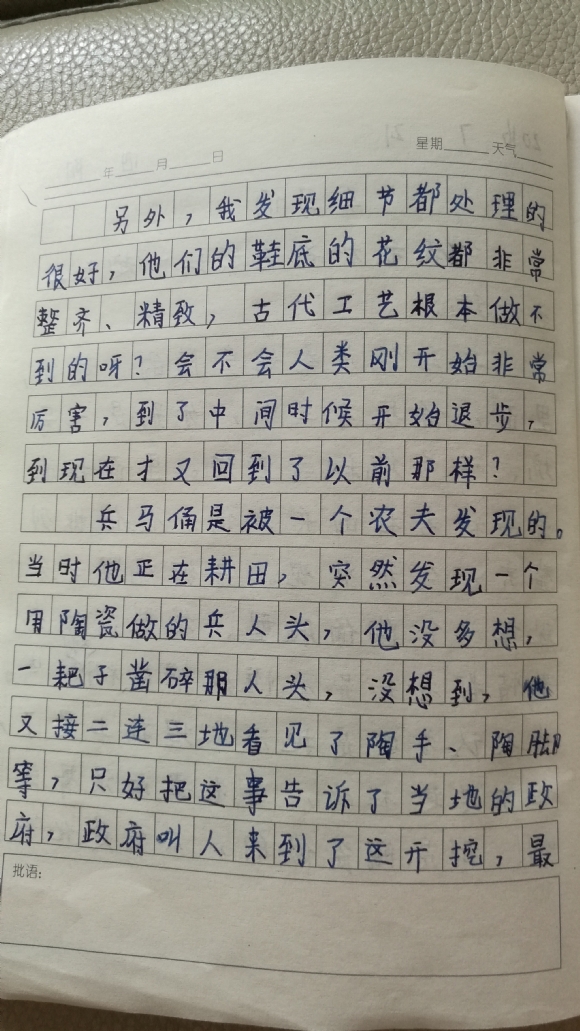 年 月 日 星期 天气
另外，我发现细节都处理的
很好，他们的鞋底的花纹都非常
整齐、精致，古代工艺根本做不
到的呀？会不会人类刚开始非常
厉害，到了中间时候开始退步，
到现在才又回到了以前那样？
兵马俑是被一个农夫发现的。
当时他正在耕田，突然发现一个
用陶瓷做的兵人头，他没多想，
一耙子凿碎那人头，没想到，他
又接二连三地看见了陶手、陶脚
等，只好把这事告诉了当地的政
府，政府叫人来到了这开挖，最
批语：